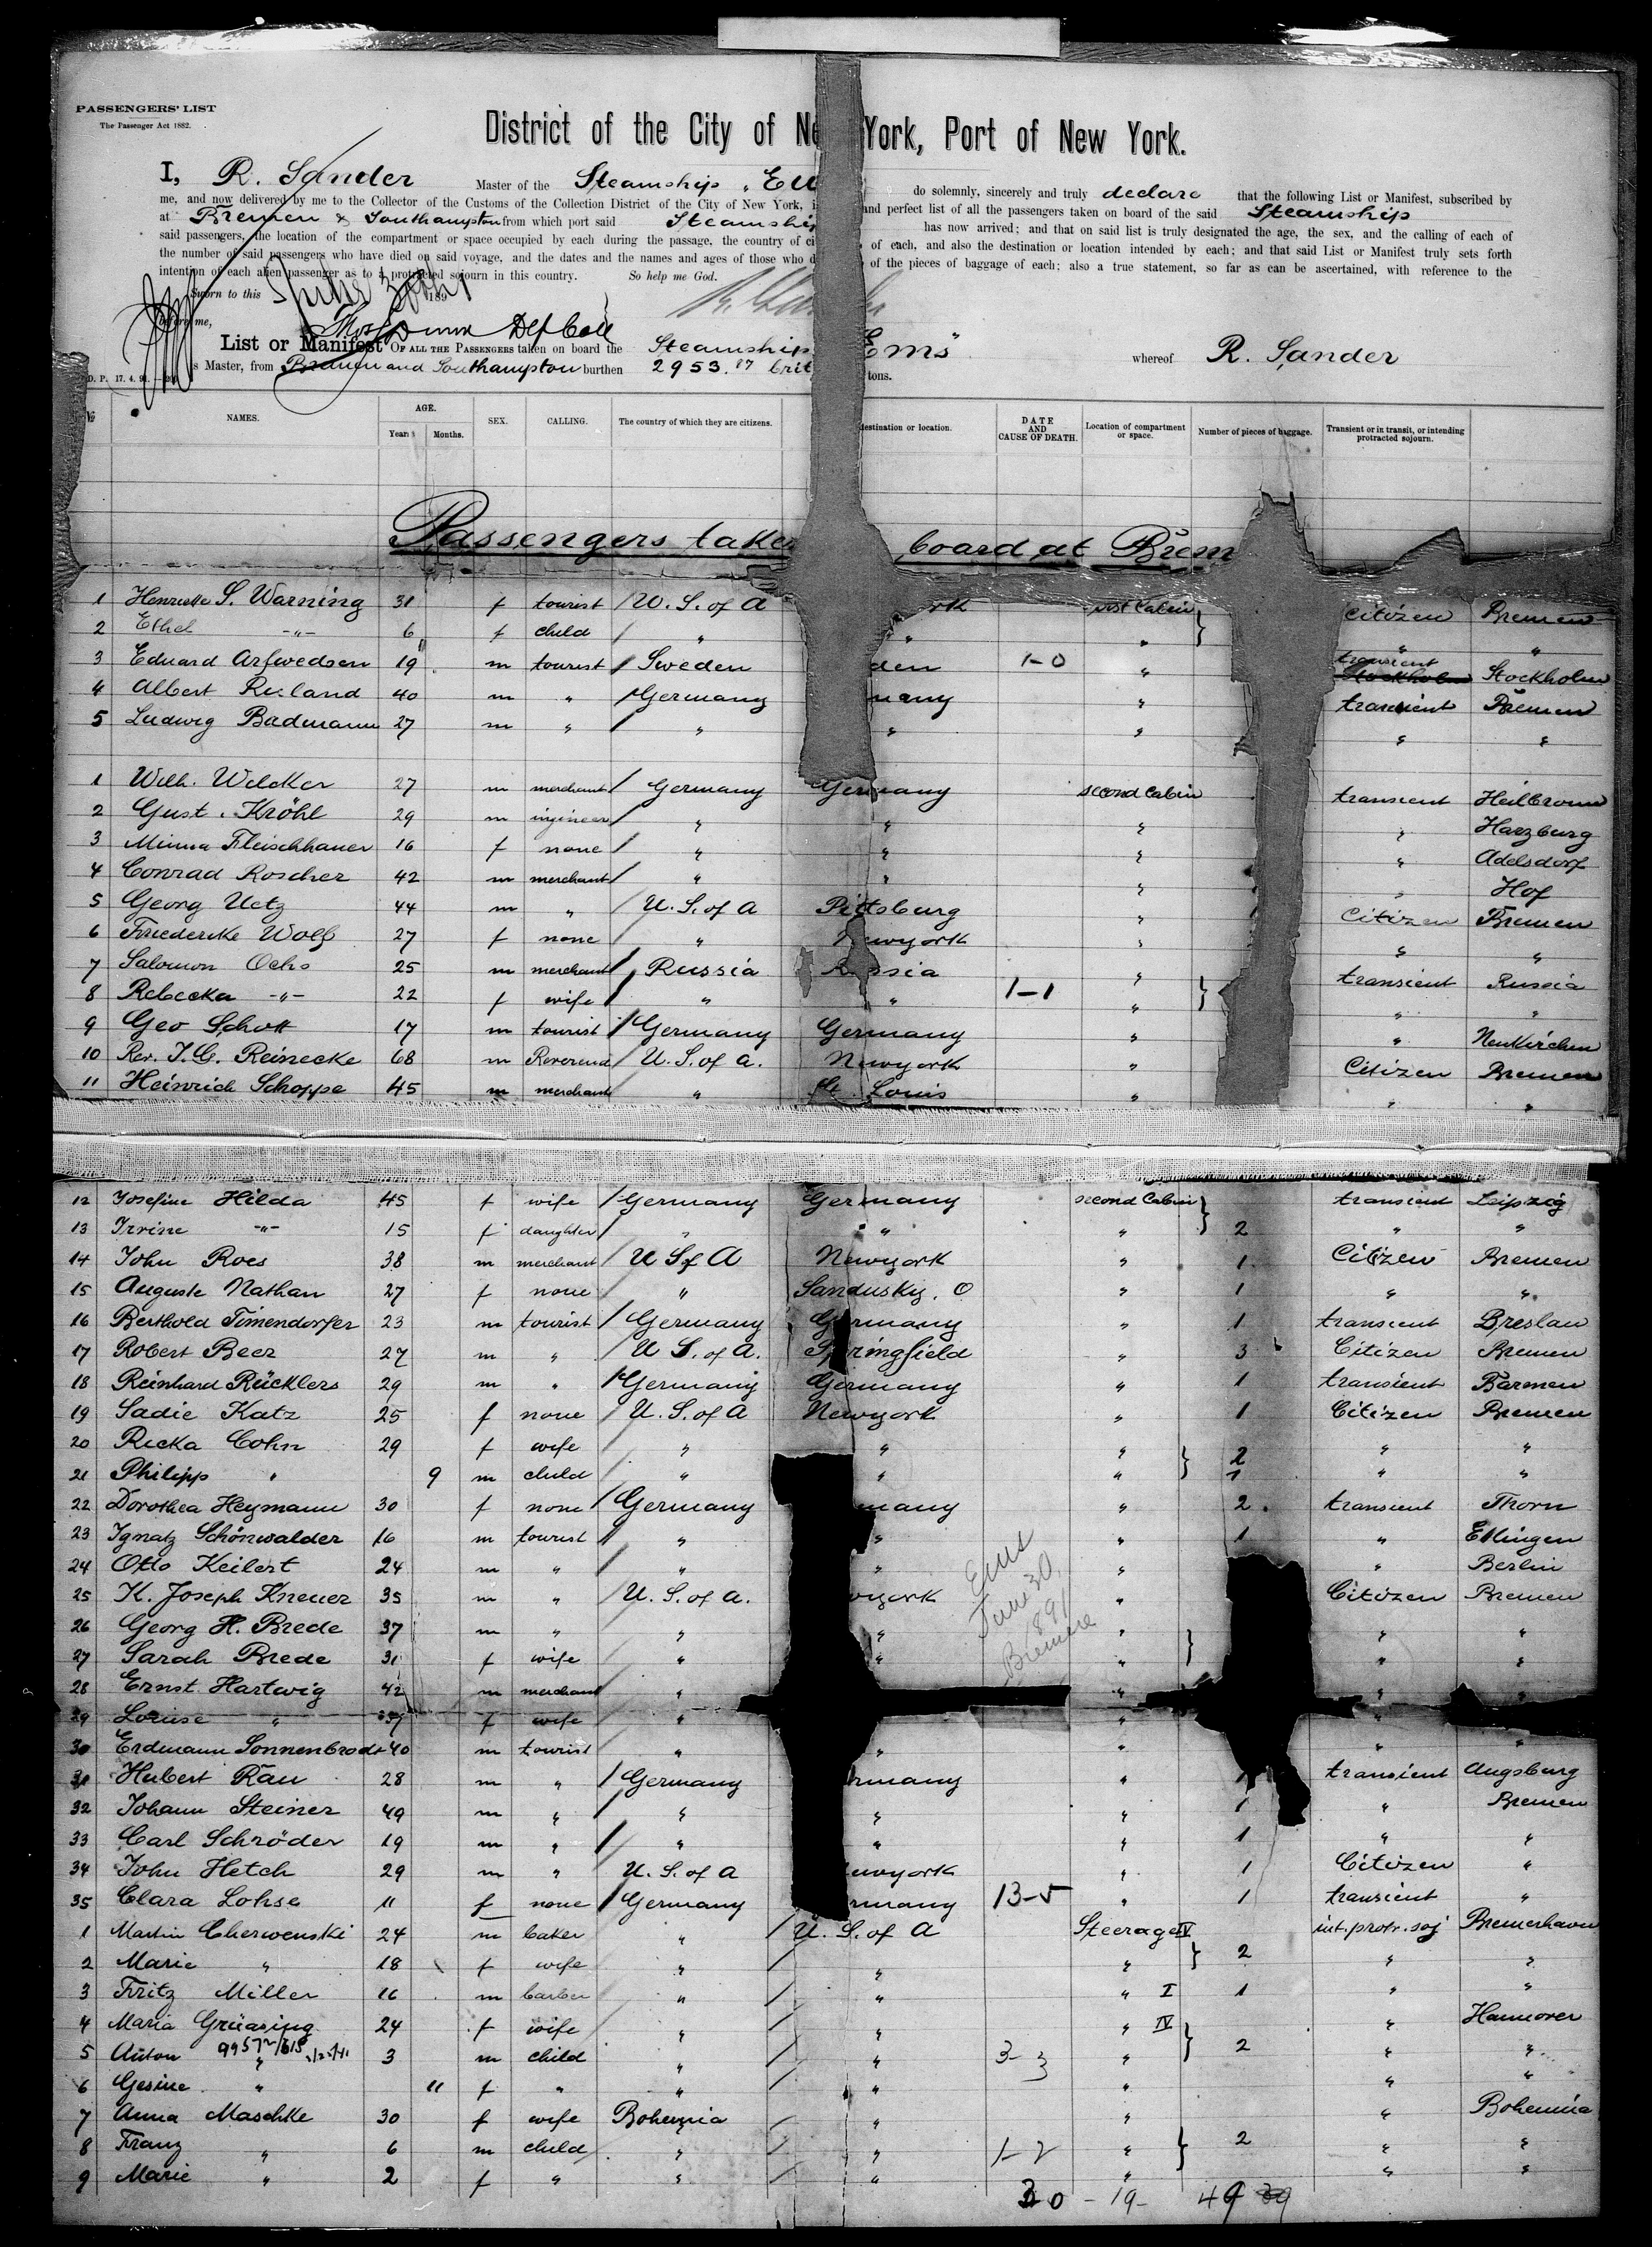 PASSENGERS' LIST
The Passenger Act 1882.
District of the City of Ne York, Port of New York.
I, R. Sander Master of the Steamship „ E do solemnly, sincerely and truly declare that the following List or Manifest, subscribed by
me, and now delivered by me to the Collector of the Customs of the Collection District of the City of New York, and perfect list of all the passengers taken on board of the said Steamship
at Bremen & Southampton from which port said Steamship has now arrived; and that on said list is truly designated the age, the sex, and the calling of each of
said passengers, the location of the compartment or space occupied by each during the passage, the country of ci of each, and also the destination or location intended by each; and that said List or Manifest truly sets forth
the number of said passengers who have died on said voyage, and the dates and the names and ages of those who d of the pieces of baggage of each; also a true statement, so far as can be ascertained, with reference to the
intention of each alien passenger as to a protracted sojourn in this country. So help me God.
Sworn to this 30th 189
before me,
List or Manifest OF ALL THE PASSENGERS taken on board the Steamship Ems" whereof R. Sander
is Master, from Bremen and Southampton burthen 2953.17 tons.
D. P. 17. 4. 91.
№ NAMES. AGE. Years Months. SEX. CALLING. The country of which they are citizens. destination or location. DATE AND CAUSE OF DEATH. Location of compartment or space. Number of pieces of baggage. Transient or in transit, or intending protracted sojourn.
Passengers take board at Brem
1 Henriette S. Warning 31 f tourist U. S. of A ork Cabin Citizen Bremen
2 Ethel -"- 6 f child " " " " "
3 Eduard Arfwedson 19 m tourist Sweden den 1-0 " transient Stockholm Stockholm
4 Albert Ruland 40 m " Germany many " transient Bremen
5 Ludwig Badmann 27 m " " " " " "
1 Wilh. Welcker 27 m merchant Germany Germany second Cabin transient Heilbronn
2 Gust. Kröhl 29 m ingineer " " " " Harzburg
3 Minna Fleischhauer 16 f none " " " " Adelsdorf
4 Conrad Roscher 42 m merchant " " " " Hof
5 Georg Uetz 44 m " U. S. of A Pittsburg " Citizen Bremen
6 Friedericke Wolf 27 f none " Newyork " " "
7 Salomon Ochs 25 m merchant Russia Russia " transient Russia
8 Rebecka -"- 22 f wife " " 1-1 " " "
9 Geo Schott 17 m tourist Germany Germany " " Neukirchen
10 Rev. J. G. Reinecke 68 m Reverend U. S. of a. Newyork " Citizen Bremen
11 Heinrich Schoppe 45 m merchant " St. Louis " " "
12 Josefine Hilda 45 f wife Germany Germany second Cabin transient Leipzig
13 Irvine -"- 15 f daughter " " " 2 " "
14 John Roes 38 m merchant U S of A Newyork " 1 Citizen Bremen
15 Auguste Nathan 27 f none " Sandusky. O " 1 " "
16 Berthold Timendorfer 23 m tourist Germany Germany " 1 transient Breslau
17 Robert Beer 27 m " U S. of A. Springfield " 3 Citizen Bremen
18 Reinhard Rücklers 29 m " Germany Germany " 1 transient Barmen
19 Sadie Katz 25 f none U. S. of A Newyork " 1 Citizen Bremen
20 Ricka Cohn 29 f wife " " " 2 " "
21 Philipp " 9 m child " " " 1 " "
22 Dorothea Heymann 30 f none Germany many " 2 transient Thorn
23 Ignatz Schönwalder 16 m tourist " " " 1 " Ettingen
24 Otto Keilert 24 m " " " " " Berlin
25 K. Joseph Kneuer 35 m " U. S. of a. wyork " Citizen Bremen
26 Georg H. Brede 37 m " " " " " "
27 Sarah Brede 31 f wife " " " " "
Ems June 30, 1891 Bremen
28 Ernst Hartwig 42 m merchant " " " "
29 Louise " 37 f wife " " "
30 Erdmann Sonnenbrodt 40 m tourist " " " " "
31 Hubert Rau 28 m " Germany rmany " 1 transient Augsburg
32 Johann Steiner 49 m " " " " 1 " Bremen
33 Carl Schröder 19 m " " " " 1 " "
34 John Hetch 29 m " U. S. of a ewyork " 1 Citizen "
35 Clara Lohse 11 f none Germany rmany 13-5 " 1 transient "
1 Martin Cherwenski 24 m baker " U. S. of A Steerage IV int. protr. soj Bremerhaven
2 Marie " 18 f wife " " " 2 " "
3 Fritz Miller 16 m barber " " " I 1 " "
4 Maria Grüasing 24 f wife " " " IV " Hannover
5 Anton " 3 m child " " 3-3 " 2 " "
6 Gesine " 11 f " " " " " "
7 Anna Maschke 30 f wife Bohemia " " " Bohemia
8 Franz " 6 m child " " 1-2 " 2 " "
9 Marie " 2 f " " " " " "
20 - 19 - 49